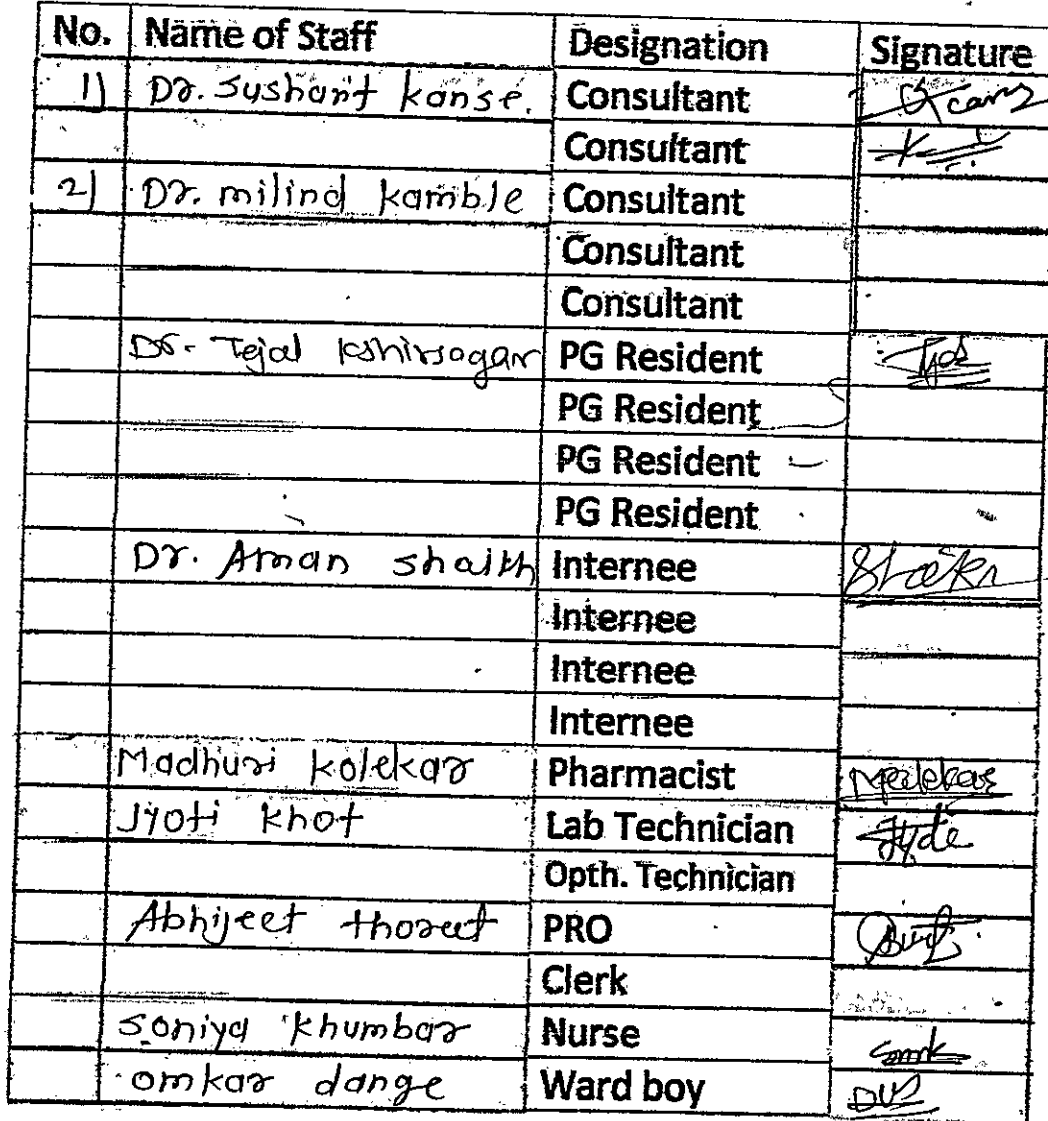 No. Name of Staff Designation Signature
1) Dr. Sushant kanse. Consultant
Consultant
2) Dr. milind kamble Consultant
Consultant
Consultant
Dr. Tejal kshirsagar PG Resident
PG Resident
PG Resident
PG Resident
Dr. Aman shaikh Internee Shaikh
Internee
Internee
Internee
Madhuri kolekar Pharmacist
Jyoti khot Lab Technician
Opth. Technician
Abhijeet thorat PRO
Clerk
Soniya khumbar Nurse
omkar dange Ward boy